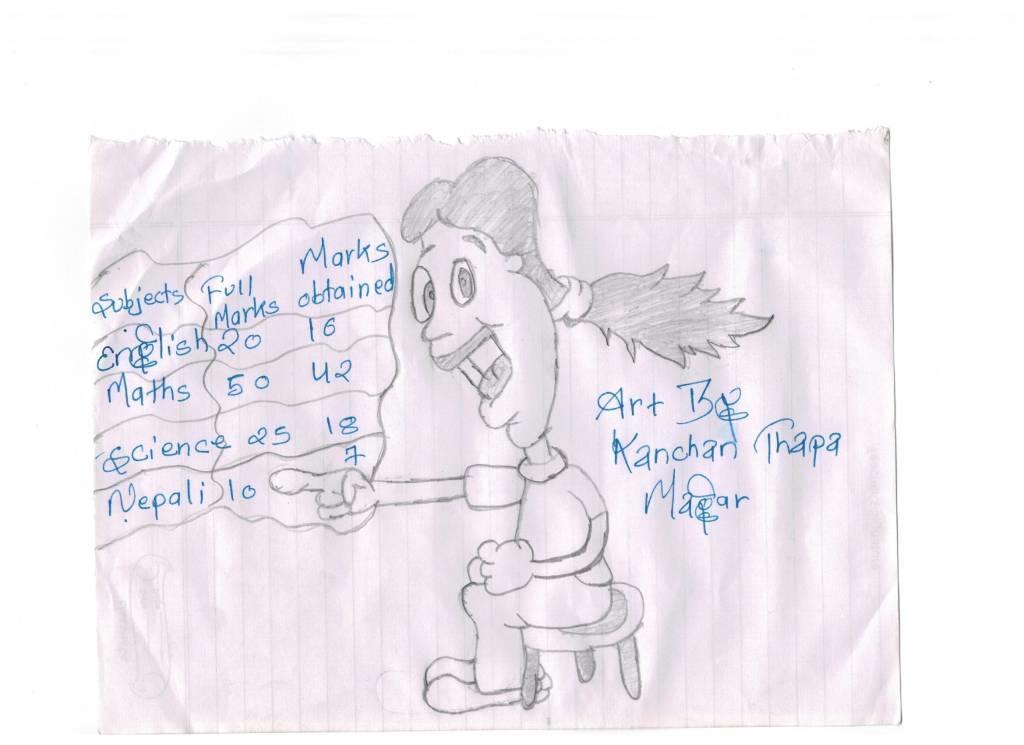 Subjects Full Marks Marks obtained
English 20 16
Maths 50 42
Science 25 18
Nepali 10 7
Art By
Kanchan Thapa
Magar